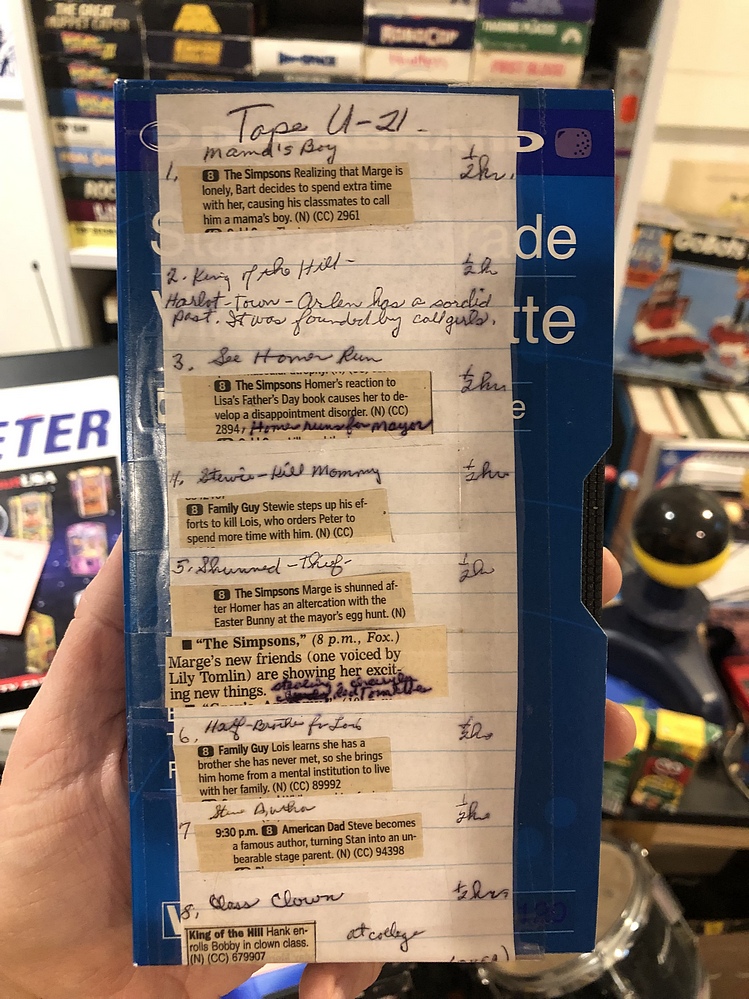 THE GREAT
MUPPET CAPER
ROBOCOP
TRADING PLACES
FIRST BLOOD
Tape U-21
Mama's Boy
1. ½hr.
8 The Simpsons Realizing that Marge is
lonely, Bart decides to spend extra time
with her, causing his classmates to call
him a mama's boy. (N) (CC) 2961
ade
2. King of the Hill- ½h
Harlot-Town-Arlen has a sordid
past. It was founded by callgirls.
tte
3. See Homer Run ½hr
8 The Simpsons Homer's reaction to
Lisa's Father's Day book causes her to de-
velop a disappointment disorder. (N) (CC)
2894, Homer runs for mayor
e
GoBots
ETER
4. Stewie-Kill Mommy ½hr
8 Family Guy Stewie steps up his ef-
forts to kill Lois, who orders Peter to
spend more time with him. (N) (CC)
5. Shunned-Thief- ½h
8 The Simpsons Marge is shunned af-
ter Homer has an altercation with the
Easter Bunny at the mayor's egg hunt. (N)
■ "The Simpsons," (8 p.m., Fox.)
Marge's new friends (one voiced by
Lily Tomlin) are showing her excit-
ing new things. stealing &
Red Tomatoes
6. Half-Brother for Lois ½hr
8 Family Guy Lois learns she has a
brother she has never met, so she brings
him home from a mental institution to live
with her family. (N) (CC) 89992
Steve Author
7 ½hr
9:30 p.m. 8 American Dad Steve becomes
a famous author, turning Stan into an un-
bearable stage parent. (N) (CC) 94398
8. Class Clown ½hr
King of the Hill Hank en-
rolls Bobby in clown class.
(N) (CC) 679907
at college